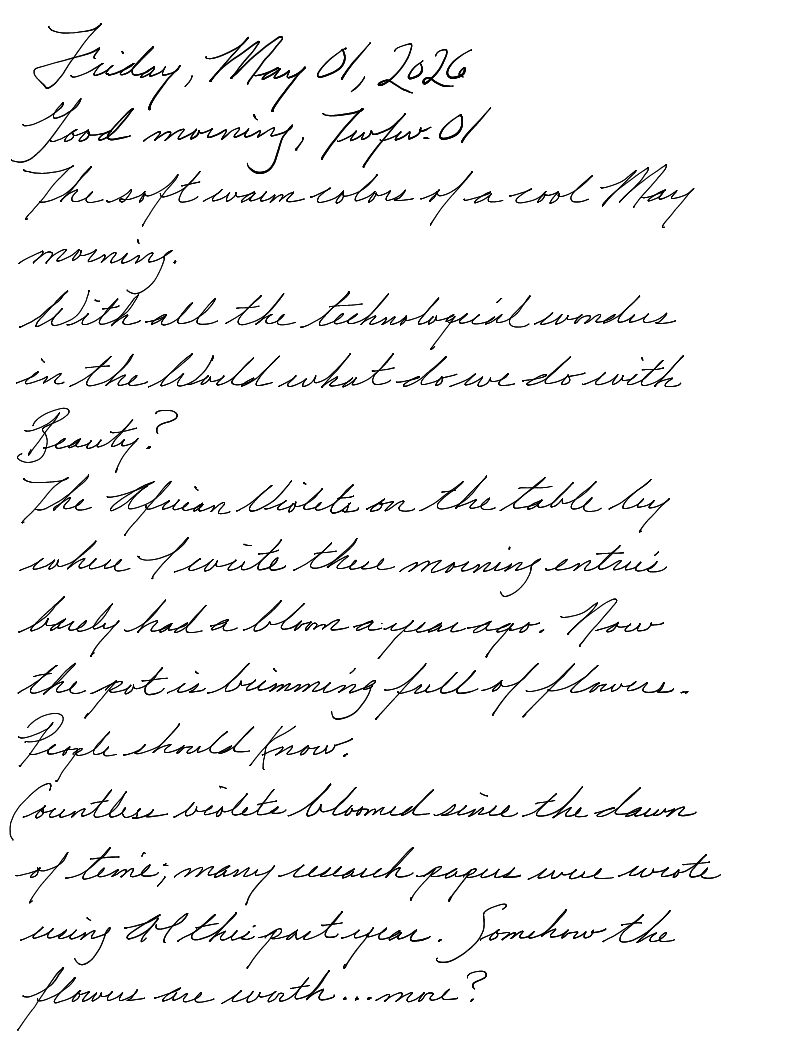 Friday, May 01, 2026
Good morning, Twfw-01
The soft warm colors of a cool May
morning.
With all the technological wonders
in the World what do we do with
Beauty?
The African Violets on the table by
where I write these morning entries
barely had a bloom a year ago. Now
the pot is brimming full of flowers.
People should Know.
Countless violets bloomed since the dawn
of time; many research papers were wrote
using AI this past year. Somehow the
flowers are worth...more?